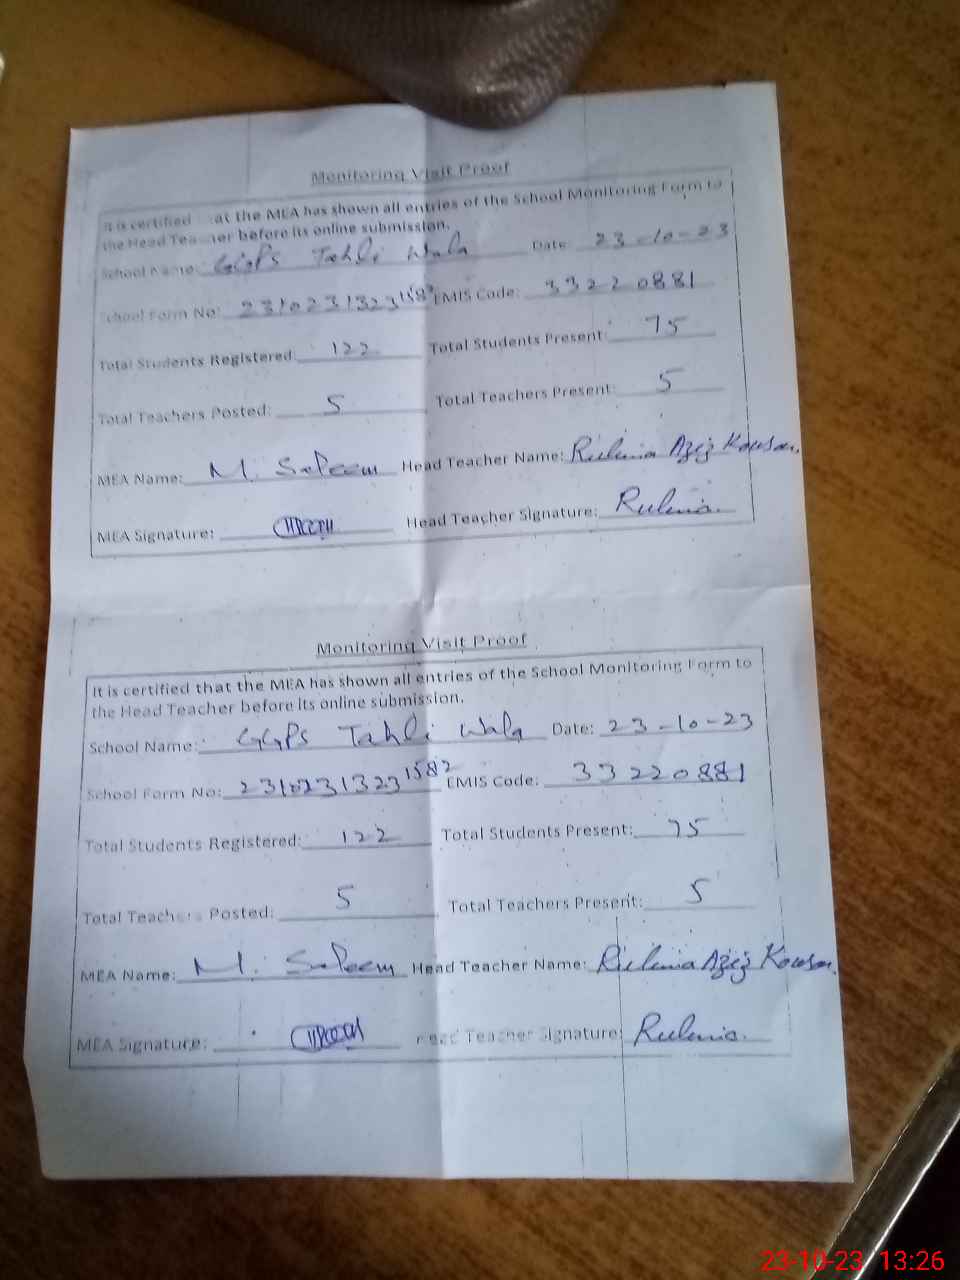 Monitoring Visit Proof
It is certified at the MEA has shown all entries of the School Monitoring Form to
the Head Teacher before its online submission.
School Name: GGPS Tahli Wala Date: 23-10-23
School Form No: 2310231323158² EMIS Code: 33220881
Total Students Registered: 122 Total Students Present: 75
Total Teachers Posted: 5 Total Teachers Present: 5
MEA Name: M. Saleem Head Teacher Name: Aziz Kousar
MEA Signature: Head Teacher Signature:
Monitoring Visit Proof
It is certified that the MEA has shown all entries of the School Monitoring Form to
the Head Teacher before its online submission.
School Name: GGPS Tahli Wala Date: 23-10-23
School Form No: 23102313231582 EMIS Code: 33220881
Total Students Registered: 122 Total Students Present: 75
Total Teachers Posted: 5 Total Teachers Present: 5
MEA Name: M. Saleem Head Teacher Name: Aziz Kousar
MEA Signature: Head Teacher Signature:
23-10-23 13:26